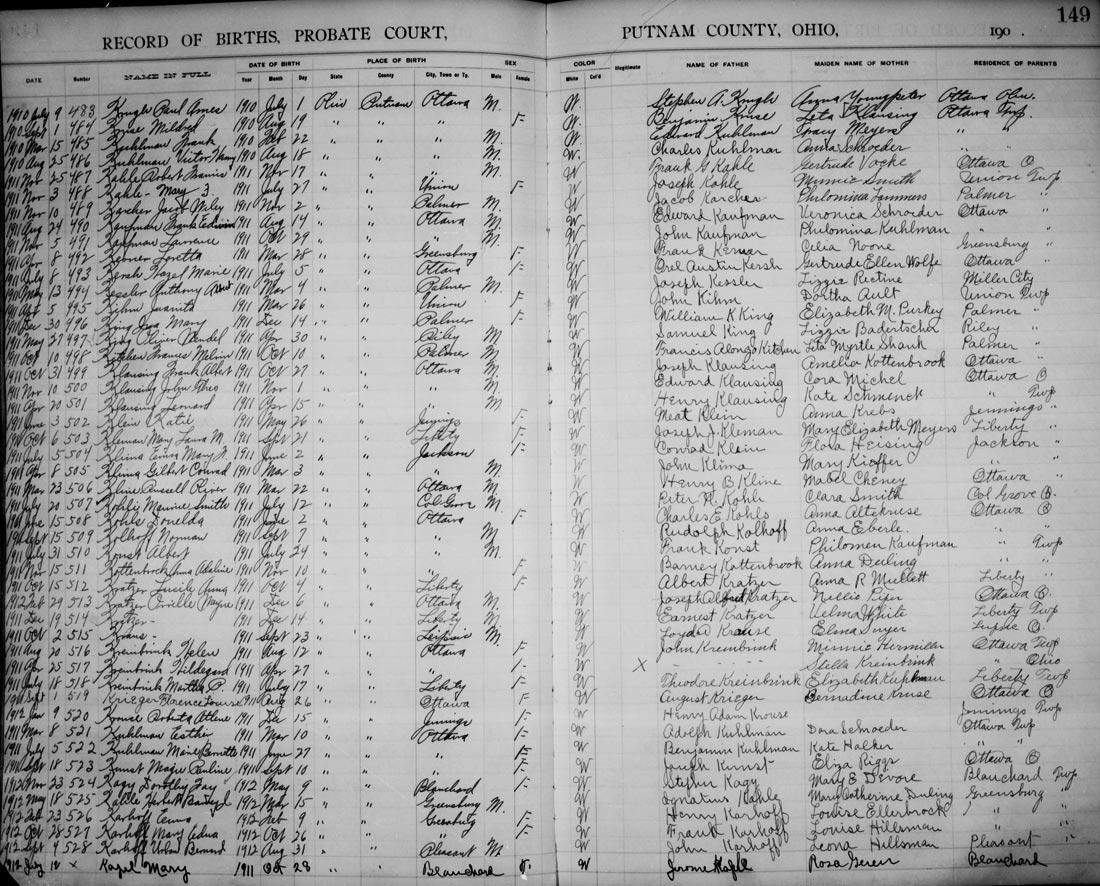 149
RECORD OF BIRTHS, PROBATE COURT, PUTNAM COUNTY, OHIO, 190 .
DATE OF BIRTH PLACE OF BIRTH SEX COLOR
DATE Number NAME IN FULL Year Month Day State County City, Town or Tp. Male Female White Col'd Illegitimate NAME OF FATHER MAIDEN NAME OF MOTHER RESIDENCE OF PARENTS
1910 July 9 483 Paul Ames 1910 July 1 Ohio Putnam Ottawa M. W. Stephen A. Anna Youngpeter Ottawa Ohio.
1 484 Kruse Mildred 1910 Aug 19 " " " F W. Benjamin Kruse Leta Klausing Ottawa Twp.
1910 Mar 15 485 Kuhlman Frank 1910 Feb 22 " " " M. W. Edward Kuhlman Meyers " "
1910 Aug 25 486 Kuhlman Victor 1910 Aug 18 " " " M. W. Charles Kuhlman Anna Schroeder " "
1911 Nov 25 487 Kahle Robert Francis 1911 Nov 17 " " " M. W Frank G Kahle Gertrude Ottawa O
1911 Nov 3 488 Kahle - Mary 1911 July 27 " " Union F W Joseph Kahle Minnie Smith Union Twp
1911 Nov 10 489 Karcher Jacob Wiley 1911 Nov 2 " " Palmer M. W Jacob Karcher Philomina Palmer "
1911 Aug 24 490 Kaufman Frank Edwin 1911 Aug 14 " " Ottawa M. W Edward Kaufman Veronica Schroeder Ottawa "
1911 Nov 5 491 Kaufman Lawrence 1911 Oct 29 " " " M. W John Kaufman Philomina Kuhlman " "
8 492 Loretta 1911 Mar 28 " " Greensburg F W Frank Celia Noone Greensburg "
1911 July 8 493 Kersh Hazel Marie 1911 July 5 " " Ottawa F W Orel Austin Kersh Gertrude Ellen Wolfe Ottawa "
1911 13 494 Kessler Anthony Albert 1911 Mar 4 " " Palmer M. W Joseph Kessler Lizzie Miller City
1911 Apr 5 495 Kihm Juanita 1911 Mar 26 " " Union F W John Kihm Dortha Ault Union Twp
1911 Dec 30 496 King Mary 1911 Dec 14 " " Palmer F W William K King Elizabeth M. Purkey Palmer "
1911 May 27 497 King Oliver Wendel 1911 Apr 30 " " Riley M W Samuel King Lizzie Badertscher Riley "
1911 Oct 10 498 Kitchen Francis Melvin 1911 Oct 10 " " Palmer M. W Francis Alonzo Kitchen Leta Myrtle Shank Palmer "
1911 Oct 31 499 Klausing Frank Albert 1911 Oct 27 " " Ottawa M. W Joseph Klausing Amelia Kottenbrook Ottawa "
1911 Nov 10 500 Klausing John 1911 Nov 1 " " " M W Edward Klausing Cora Michel Ottawa O
1911 Apr 20 501 Klausing Leonard 1911 Apr 15 " " M W Henry Klausing Kate " Twp
1911 June 3 502 Klein Katie 1911 May 26 " " Jennings F W Klein Anna Krebs Jennings "
1911 Oct 6 503 Kleman Mary Laura M. 1911 Sept 21 " " Liberty F W Joseph J. Kleman Mary Elizabeth Meyers Liberty "
1911 July 5 504 Klima Mary 1911 June 2 " " Jackson F W Conrad Klein Flora Heising Jackson "
1911 Apr 8 505 Klima Gilbert Conrad 1911 Mar 3 " " " M W John Klima Mary Kieffer "
1911 Mar 23 506 Kline Russell Oliver 1911 Mar 22 " " Ottawa M. W Henry B. Kline Mabel Cheney Ottawa "
1911 July 20 507 Kohli Maurice Smith 1911 July 12 " " Col Grove M. W Peter Kohli Clara Smith Col Grove O.
1911 June 15 508 Kohls Donelda 1911 June 2 " " Ottawa F W Charles E Kohls Anna Altekruse Ottawa O
1911 Sept 15 509 Kolhoff Norman 1911 Sept 7 " " " M W Rudolph Kolhoff Anna Eberle. " "
1911 July 31 510 Konst Albert 1911 July 24 " " " M. W Frank Konst Philomen Kaufman " Twp
1911 Nov 15 511 Kottenbrock Anna Adaline 1911 Nov 10 " " " F W Barney Kottenbrook Anna Duling " "
1911 Oct 15 512 Kratzer Lucile Anna 1911 Oct 4 " " Liberty F W Albert Kratzer Anna R Mullett Liberty "
1912 Feb 29 513 Kratzer Orville Mayne 1911 Dec 6 " " Ottawa M. W Joseph Alfred Kratzer Nellie Piper Ottawa O.
1911 Dec 19 514 Kratzer - 1911 Dec 14 " " Liberty M. W Earnest Kratzer Velma White Liberty Twp
1911 Oct 2 515 Kraus - 1911 Sept 23 " " Leipsic M. W Loyd Krause Elma Leipsic O.
1911 Aug 20 516 Kreinbrink Helen 1911 Aug 12 " " Ottawa F W John Kreinbrink Minnie Hermiller Ottawa Twp
1911 Apr 25 517 Kreinbrink Hildegard 1911 Apr 27 " " F W X - - - - Stella Kreinbrink " Ohio
1911 July 18 518 Kreinbrink Martha P. 1911 July 17 " " Liberty F W Theodore Kreinbrink Elizabeth Liberty Twp
1911 Sept 1 519 Krieger Florence Louise 1911 Aug 26 " " Ottawa F W August Krieger Bernadine Kruse Ottawa O
1912 Jan 9 520 Krouse Roberta 1911 Dec 15 " " Jennings F W Henry Adam Krouse Jennings Twp
1912 Mar 8 521 Kuhlman Esther 1911 Mar 10 " " Ottawa F W Adolph Kuhlman Dora Schroeder Ottawa Twp
1911 July 5 522 Kuhlman Marie Bernette 1911 June 27 " " " F W Benjamin Kuhlman Kate Halker " "
1911 Sept 18 523 Kunst Pauline 1911 Sept 10 " " " F W Joseph Kunst Eliza Riggs Ottawa O
1912 Nov 23 524 Kagy Dorothy Fay 1912 May 9 " " Blanchard F W Stephen Kagy Mary E Devore Blanchard Twp
1912 May 18 525 Kahle Herbert 1912 Mar 15 " " Greensburg M. W Ignatius Kahle Mary Catherine Duling Greensburg "
1912 Feb 23 526 Karhoff 1912 Feb 9 " " Greensburg F W Henry Karhoff Louise Ellerbrock " "
1912 Oct 28 527 Karhoff Mary Edna 1912 Oct 26 " " " F W Frank Karhoff Louise Hillsman " "
1912 Sept 9 528 Karhoff Urban Bernard 1912 Aug 31 " " Pleasant M W John Karhoff Leona Hillsman Pleasant "
1912 July 12 x Kagel Mary 1911 Oct 28 " Blanchard F. W Jerome Kagel Rosa Blanchard